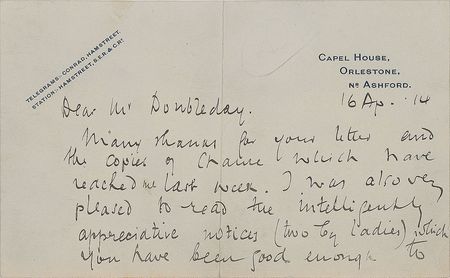 TELEGRAMS:- CONRAD, HAMSTREET.
STATION:- HAMSTREET, S.E.R. & C. Ry.
CAPEL HOUSE,
ORLESTONE,
NR ASHFORD.
16 Ap. 14
Dear Mr Doubleday.
Many thanks for your letter and
the copies of Chance which have
reached me last week. I was also very
pleased to read the intelligently
appreciative notices (two by ladies) which
you have been good enough to